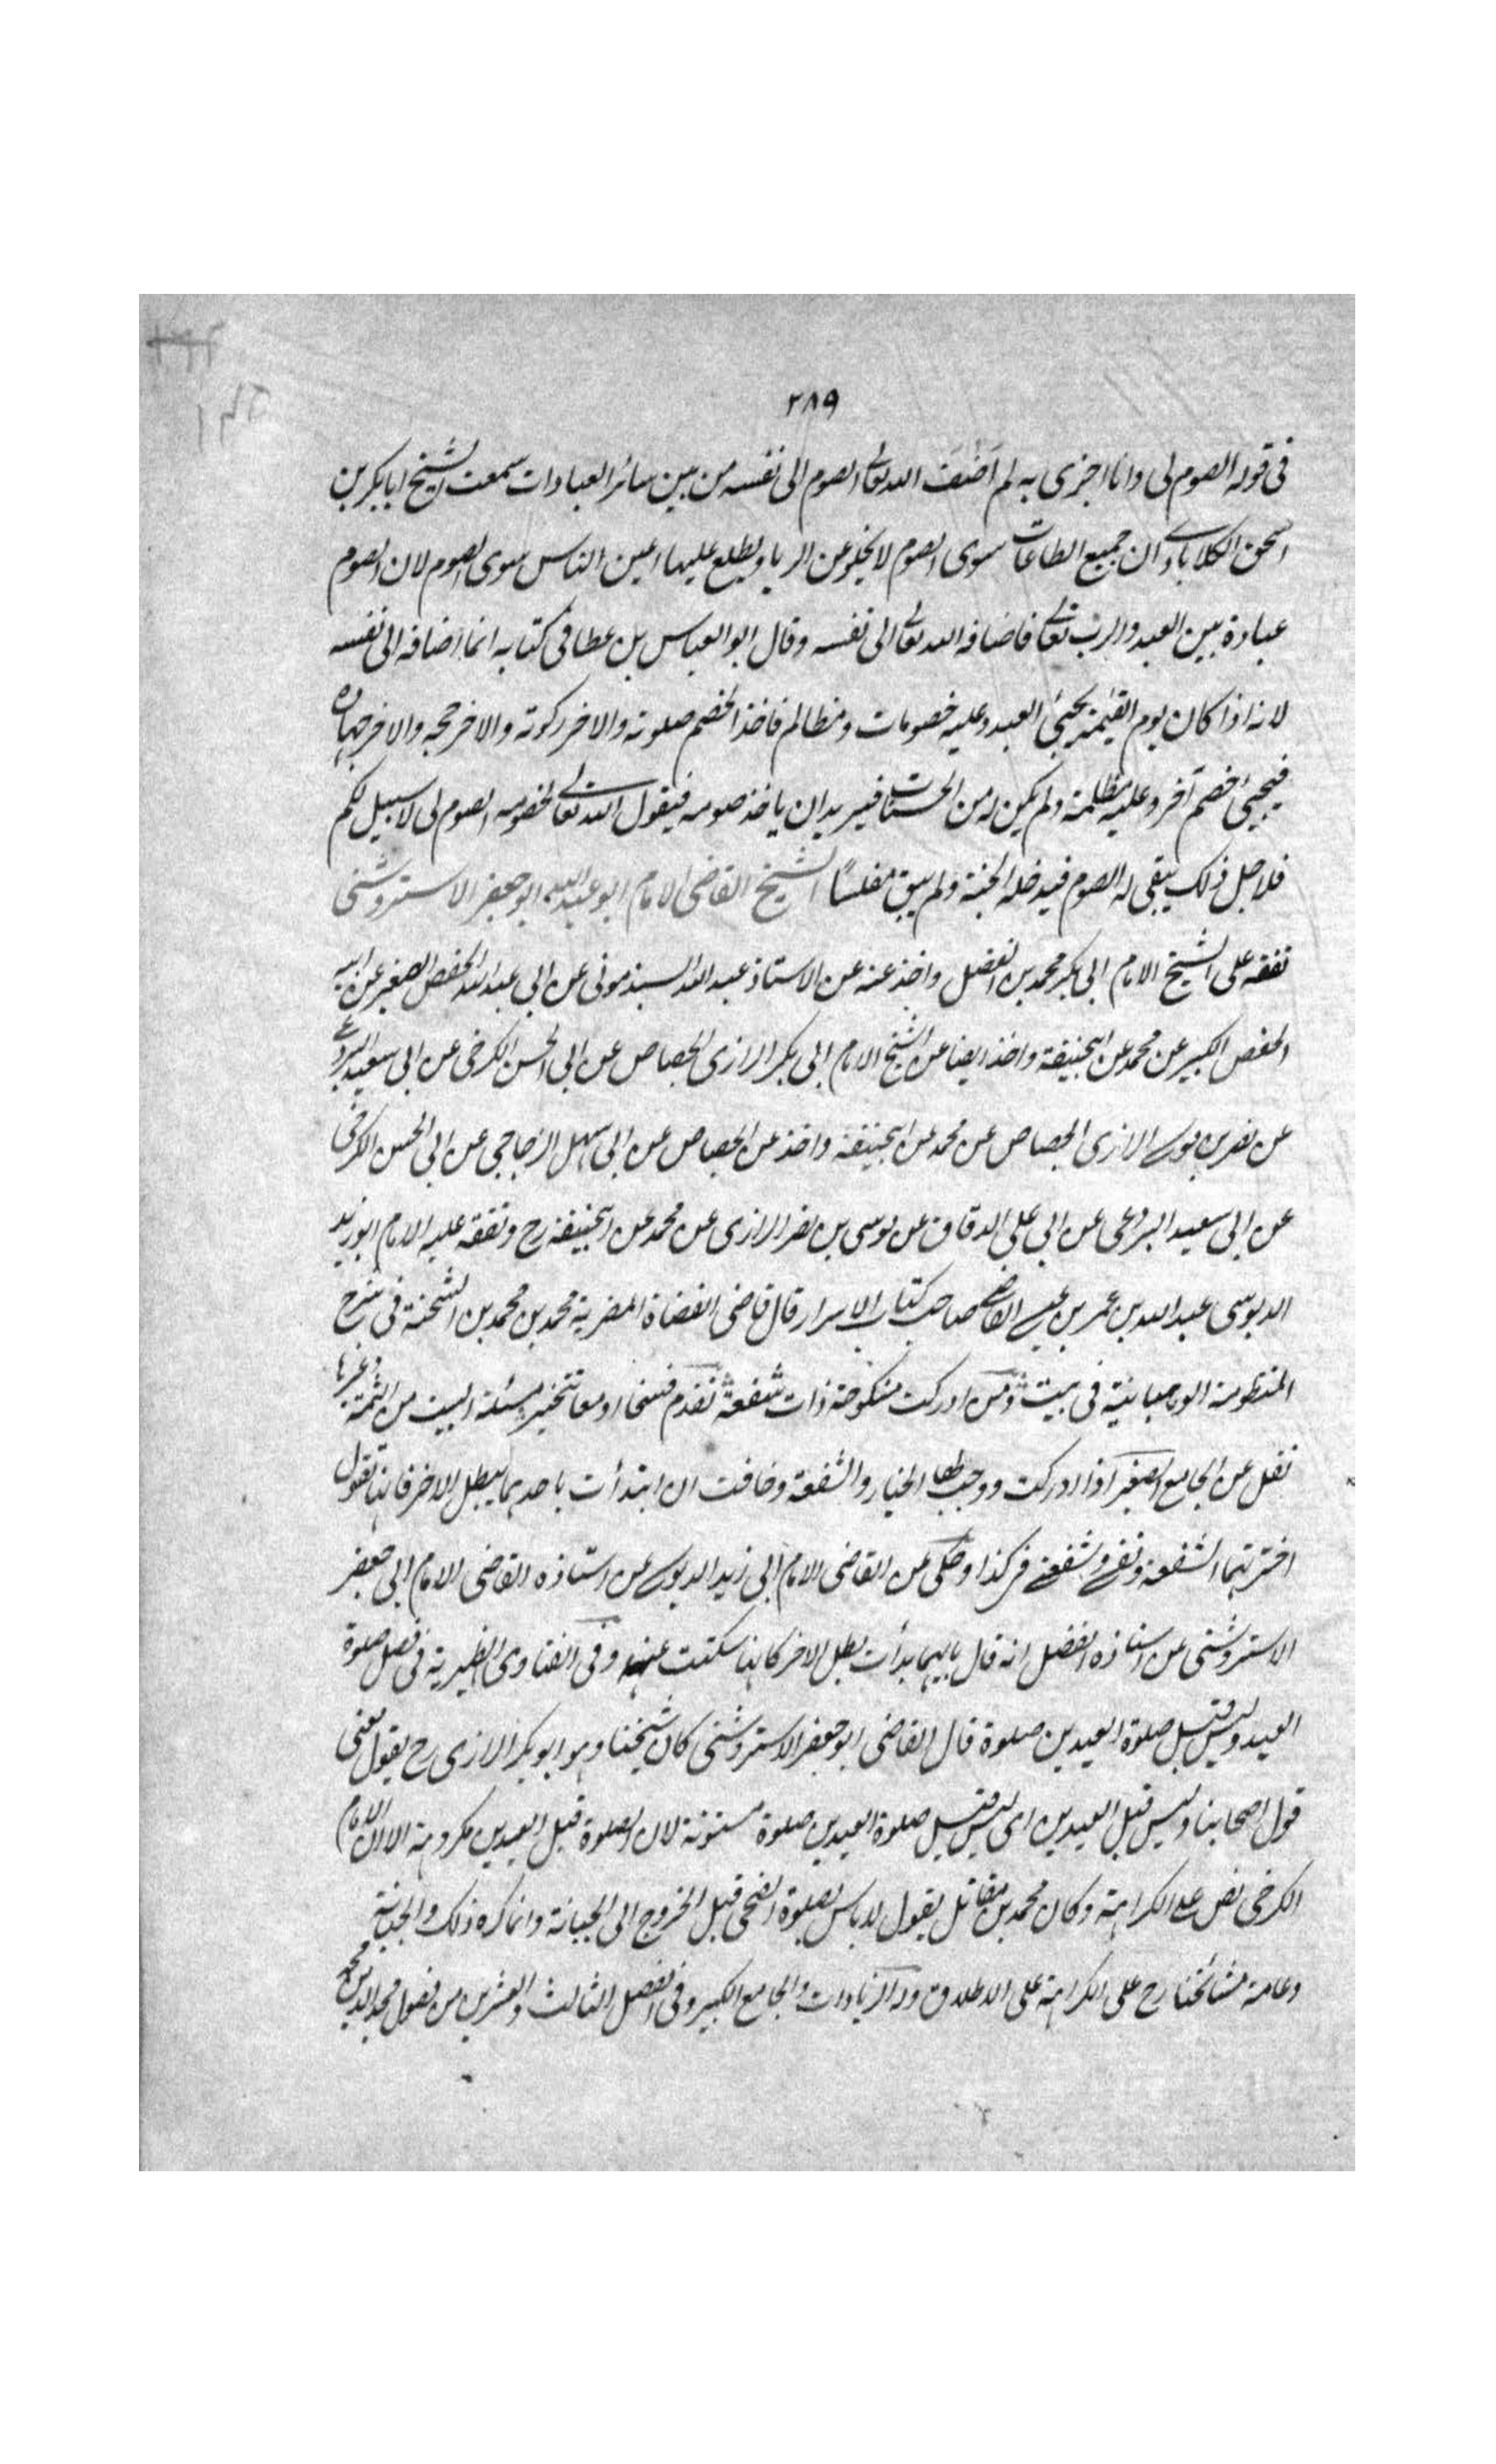 ٢٨٩
فى قوله الصوم لى وانا اجزى به لم اَضَفَ الله تعالى الصوم الى نفسه من بين سائر العبادات سمعت الشيخ ابا بكر بن
اسحق الكلاباذى ان جميع الطاعات سوى الصوم لا يخلو عن الريا ويطلع عليها اعين الناس سوى الصوم لان الصوم
عبادة بين العبد والرب تعالى فاضافه الله تعالى الى نفسه وقال ابو العباس بن عطا فى كتابه انما اضافه الى نفسه
لانه اذا كان يوم القيمة يجيئ العبد وعليه خصومات ومظالم فاخذ الخصم صلوته والاخر زكوته والاخر حجه والاخر جهاده
فيجيئ خصم آخر وعليه مظلمة ولم يكن له من الحسنات فيريد ان ياخذ صومه فيقول الله تعالى لخصومه الصوم لى لا سبيل لكم
فلاجل ذلك يبقى له الصوم فيدخله الجنة ولم يبق مفلسًا الشيخ القاضى الامام ابو عبد الله ابو جعفر الاستروشنى
تفقه على الشيخ الامام ابى بكر محمد بن الفضل واخذ عنه عن الاستاذ عبد الله السبذمونى عن ابى عبد الله الحفص الصغير عن ابيه
الحفص الكبير عن محمد عن ابيحنيفة واخذ ايضا عن الشيخ الامام ابى بكر الرازى الجصاص عن ابى الحسن الكرخى عن ابى سعيد البردعى
عن نصر بن موسى الرازى الجصاص عن محمد عن ابيحنيفة واخذ عن الجصاص عن ابى سهل الزجاجى عن ابى الحسن الكرخى
عن ابى سعيد البردعى عن ابى على الدقاق عن موسى بن نصر الرازى عن محمد عن ابيحنيفة رح وتفقه عليه الامام ابو زيد
الدبوسى عبد الله بن عمر بن عيسى القاضى صاحب كتاب الاسرار قال قاضى القضاة المضرية محمد بن محمد بن الشحنة فى شرح
المنظومة الوهبانية فى بيت ومن ادركت منكوحة ذات شفعة تقدم فسخا او معا تتخير مسئلة البيت من التتمة وغيرها
نقل عن الجامع الصغير اذا ادركت ووجب لها الخيار والشفعة وخافت ان ابتدأت باحدهما يبطل الاخر فانها تقول
اخترتهما الشفعة ونفسى وشفعتى كذا وحكى عن القاضى الامام ابى زيد الدبوسى عن استاذه القاضى الامام ابى جعفر
الاستروشنى عن استاذه الفضل انه قال بايهما بدأت بطل الاخر كانها سكتت عنه وفى الفتاوى الظهيرية فى فصل صلوة
العيد وليس قبل صلوة العيدين صلوة قال القاضى ابو جعفر الاستروشنى كان شيخنا وهو ابو بكر الرازى رح يقول معنى
قول اصحابنا وليس قبل العيدين اى ليس قبل صلوة العيدين صلوة مسنونة لان الصلوة قبل العيدين مكروهة الا ان الامام
الكرخى نص على الكراهة وكان محمد بن مقاتل يقول لا باس بصلوة الضحى قبل الخروج الى الجبانة وانما كره ذلك والجبانة
وعامة مشائخنا رح على الكراهة على الاطلاق وله الزيادات والجامع الكبير وفى الفصل الثالث والعشرين من فصول مجد الدين محمد